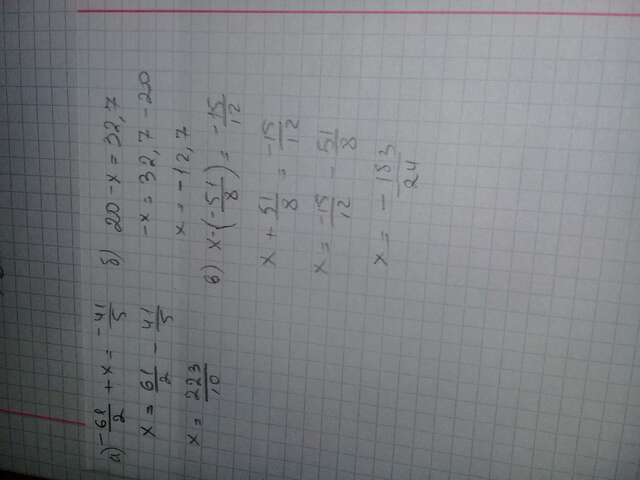 а) -61/2 + x = -41/5
x = 61/2 - 41/5
x = 223/10
б) 20 - x = 32,7
-x = 32,7 - 20
x = -12,7
в) x - (-51/8) = -15/12
x + 51/8 = -15/12
x = -15/12 - 51/8
x = - 183/24